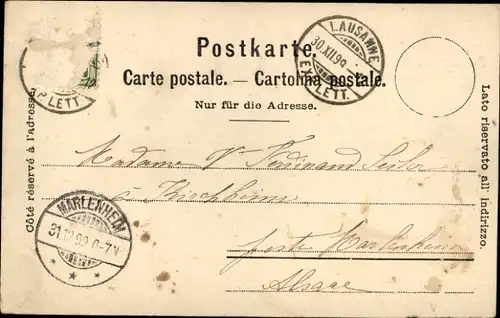 Postkarte.
Carte postale. — Cartolina postale.
Nur für die Adresse.
Côté réservé à l'adresse.
Lato riservato all' indirizzo.
LAUSANNE
30.XII.99
EXP. LETT.
EXP. LETT.
Madame Vᵉ Ferdinand Seiler
à Kirchheim
poste Marlenheim
Alsace
MARLENHEIM
31.12.99. 6-7 N